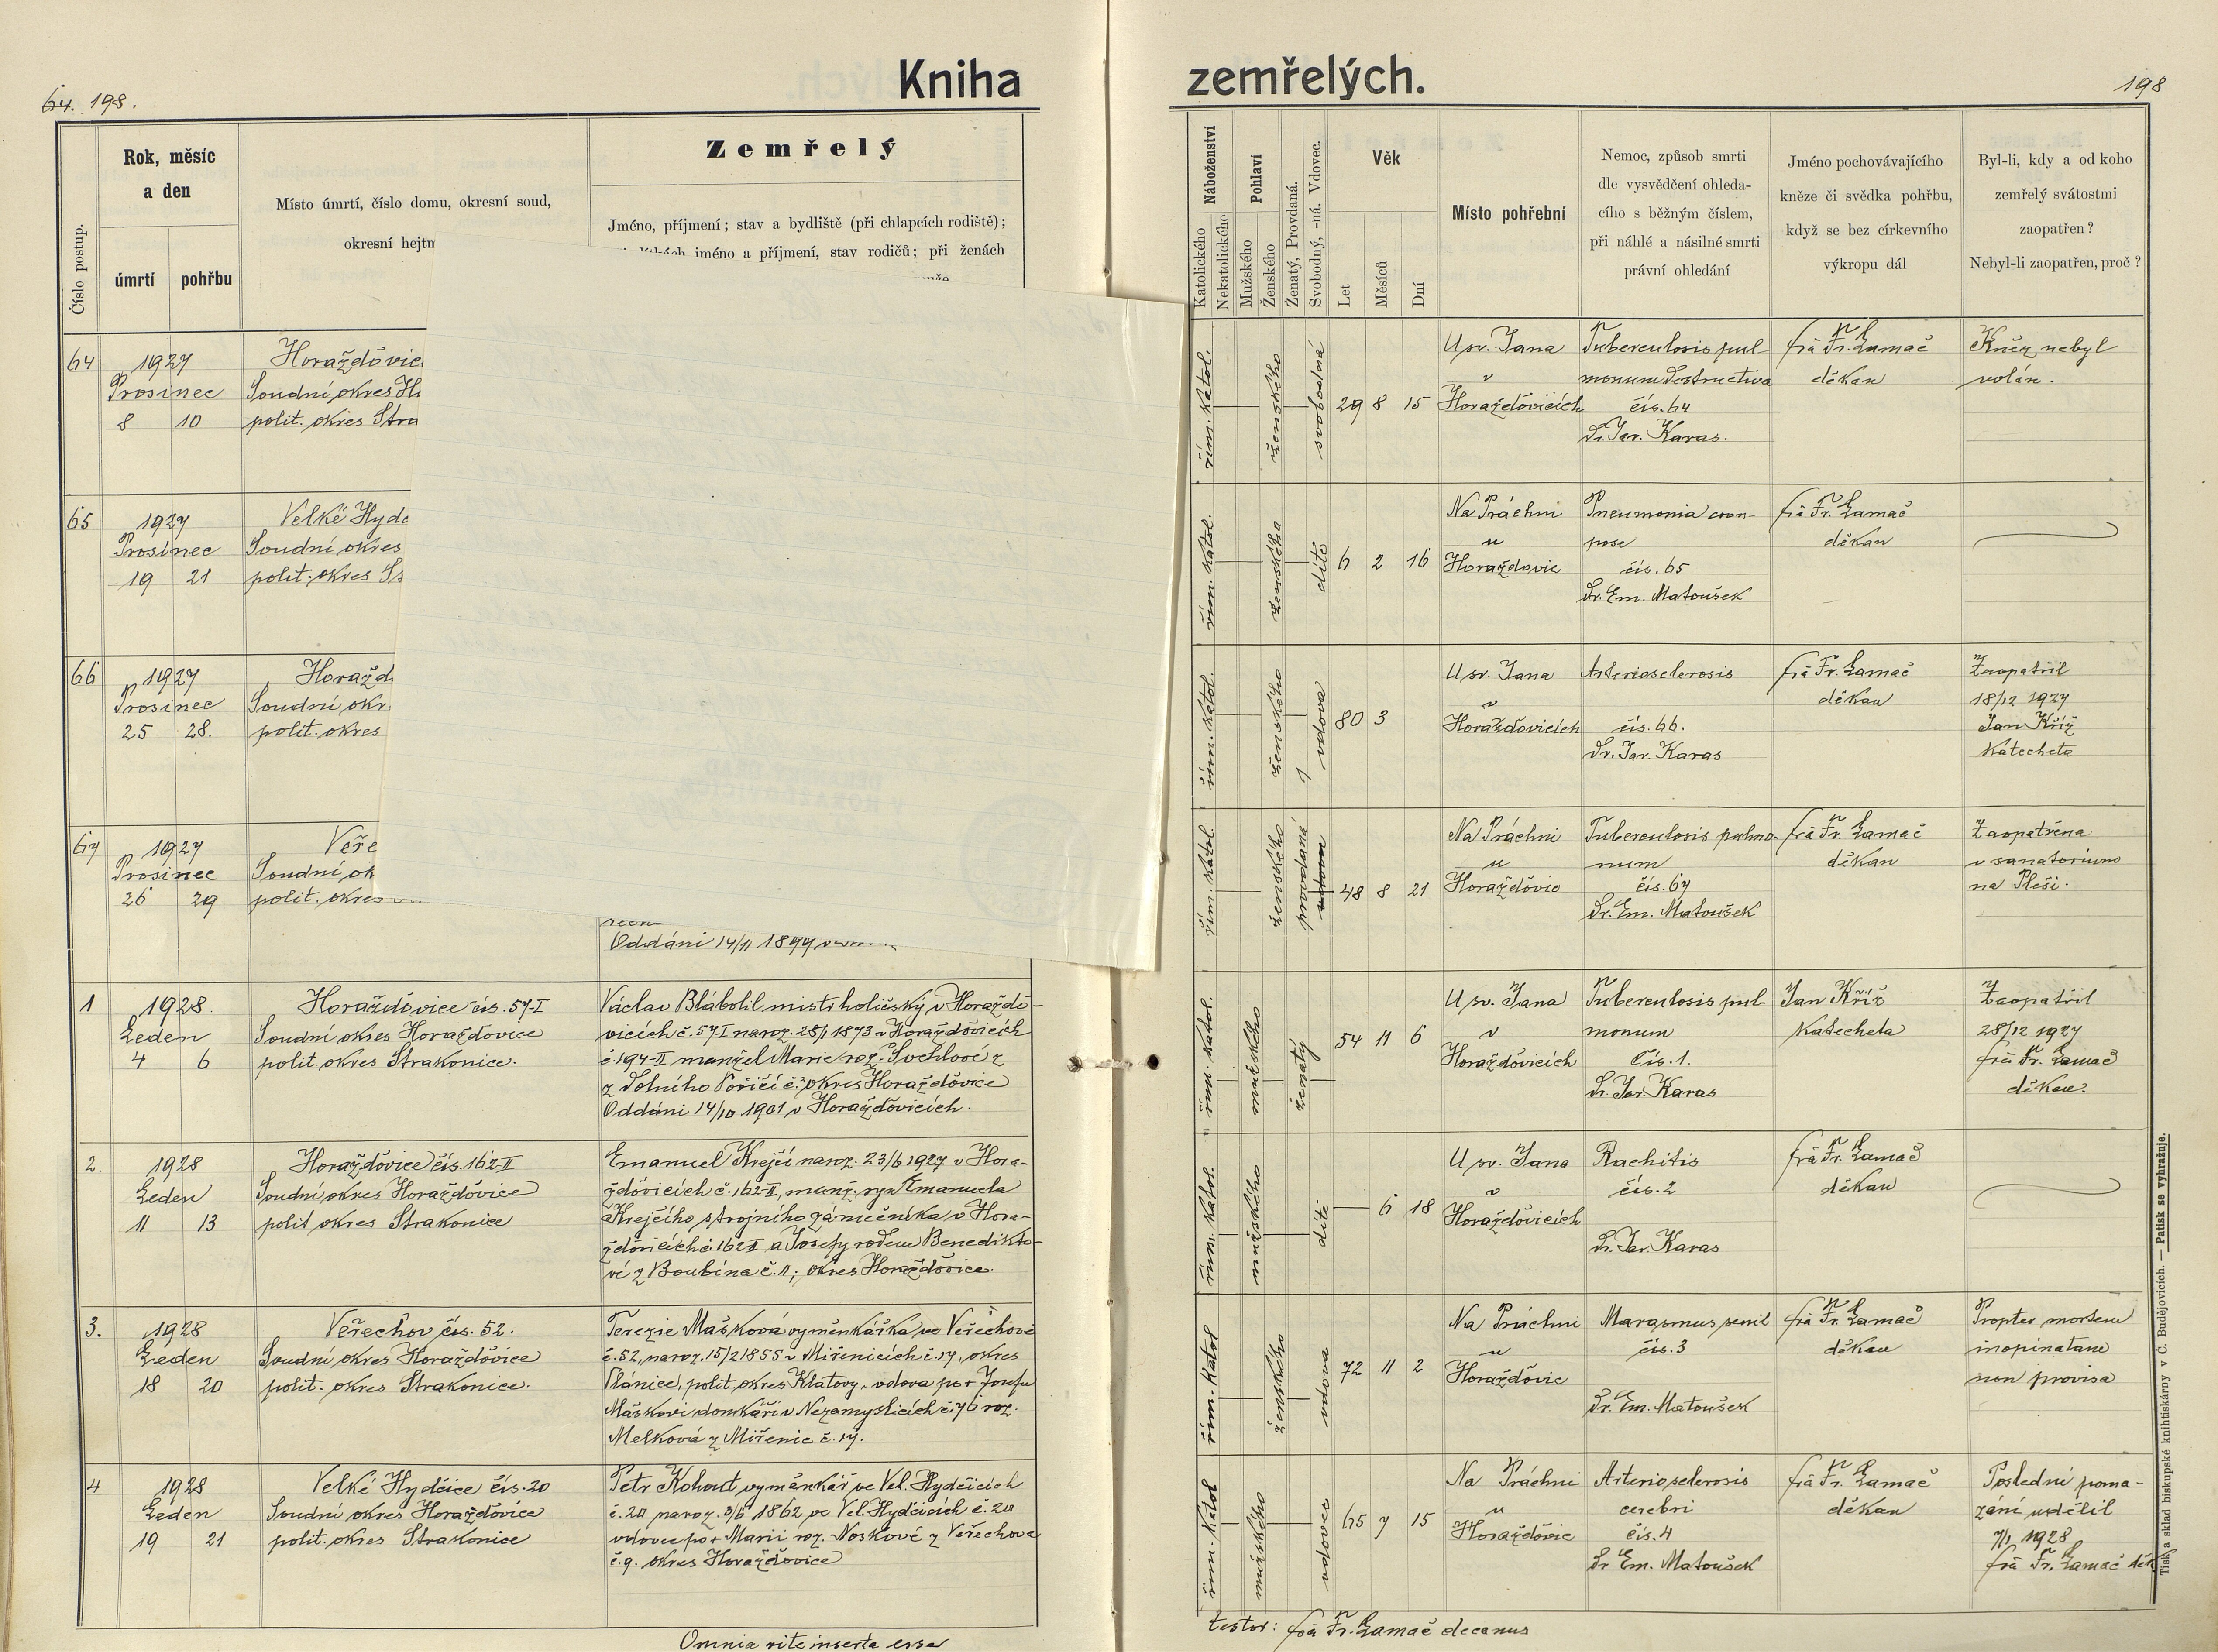 64. 198.
Kniha
zemřelých.
198
Číslo postup.
Rok, měsíc
a den
úmrtí
pohřbu
Místo úmrtí, číslo domu, okresní soud,
okresní hejtm
Zemřelý
Jméno, příjmení; stav a bydliště (při chlapcích rodiště);
jméno a příjmení, stav rodičů; při ženách
Náboženství
Katolického
Nekatolického
Pohlaví
Mužského
Ženského
Ženatý, Provdaná.
Svobodný, -ná. Vdovec.
Věk
Let
Měsíců
Dní
Místo pohřební
Nemoc, způsob smrti
dle vysvědčení ohleda-
cího s běžným číslem,
při náhlé a násilné smrti
právní ohledání
Jméno pochovávajícího
kněze či svědka pohřbu,
když se bez církevního
výkropu dál
Byl-li, kdy a od koho
zemřelý svátostmi
zaopatřen?
Nebyl-li zaopatřen, proč?
64
1927
Prosinec
8 10
Horažďovic
Soudní okres Ho
polit. okres Stra
řím. katol.
ženského
svobodná
29 8 15
U sv. Jana
v
Horažďovicích
Tuberculosis pul
monum destructiva
čís. 64
Dr. Jar. Karas.
frá Fr. Lamač
děkan
Kněz nebyl
volán.
65
1927
Prosinec
19 21
Velké Hydč
Soudní okres
polit. okres S
řím. katol.
ženského
dítě
6 2 16
Na Práchni
u
Horažďovic
Pneumonia crou-
pose
čís. 65
Dr. Em. Matoušek
frá Fr. Lamač
děkan
66
1927
Prosinec
25 28.
Horažd
Soudní okr
polit. okres
řím. katol.
ženského
vdova
80 3
U sv. Jana
v
Horažďovicích
Arteriosclerosis
čís. 66.
Dr. Jar. Karas
frá Fr. Lamač
děkan
Zaopatřil
18/12 1927
Jan Kříž
katecheta
67
1927
Prosinec
26 29
Veře
Soudní ok
polit. okres
Oddáni 14/11 1899
řím. katol.
ženského
provdaná
vdova
48 8 21
Na Práchni
u
Horažďovic
Tuberculosis pulmo-
num
čís. 67
Dr. Em. Matoušek
frá Fr. Lamač
děkan
Zaopatřena
v sanatorium
na Pleši.
1
1928.
Leden
4 6
Horažďovice čís. 57-I
Soudní okres Horažďovice
polit. okres Strakonice.
Václav Blábolil mistr holičský v Horaždo-
vicích č. 57-I naroz. 28/1 1873 v Horažďovicích
č 197-II manžel Marie roz. Švehlové z
z Dolního Poříčí č. 3, okres Horažďovice
Oddáni 14/10 1901 v Horažďovicích.
řím. katol.
mužského
ženatý
54 11 6
U sv. Jana
v
Horažďovicích
Tuberculosis pul
monum
Čís. 1.
Dr. Jar. Karas
Jan Kříž
katecheta
Zaopatřil
28/12 1927
frá Fr. Lamač
děkan.
2.
1928
Leden
11 13
Horažďovice čís. 162-II
Soudní okres Horažďovice
polit okres Strakonice
Emanuel Krejčí naroz. 23/6 1927 v Hora-
žďovicích č. 162-II, manž. syn Emanuela
Krejčího strojního zámečníka v Hora-
žďovicích č. 162 II a Josefy rodem Benedikto-
vé z Boubína č. 1; okres Horažďovice.
řím. katol.
mužského
dítě
6 18
U sv. Jana
v
Horažďovicích
Rachitis
čís. 2
Dr. Jar. Karas
frá Fr. Lamač
děkan
3.
1928
Leden
18 20
Veřechov čís. 52.
Soudní okres Horažďovice
polit. okres Strakonice.
Terezie Mašková vyměnkářka ve Veřechově
č. 52, naroz. 15/2 1855 v Miřenicích č. 17, okres
Plánice, polit. okres Klatovy, vdova po † Josefu
Maškovi domkáři v Nezamyslicích č. 76 roz.
Melková z Miřenic č. 17.
řím. katol
ženského
vdova
72 11 2
Na Práchni
u
Horažďovic
Marasmus senil
čís. 3
Dr. Em. Matoušek
frá Fr. Lamač
děkan
Propter mortem
inopinatam
non provisa
4
1928
Leden
19 21
Velké Hydčice čís. 20
Soudní okres Horažďovice
polit. okres Strakonice
Petr Kohout vyměnkář ve Vel. Hydčicích
č. 20 naroz. 3/6 1862 ve Vel. Hydčicích č. 20
vdovec po † Marii roz. Noskové z Veřechova
č. 9. okres Horažďovice
řím. katol
mužského
vdovec
65 7 15
Na Práchni
u
Horažďovic
Arteriosclerosis
cerebri
čís. 4
Dr Em. Matoušek
frá Fr. Lamač
děkan
Poslední poma-
zání udělil
7/1 1928
frá Fr. Lamač děk
Omnia rite inserta esse
testor: frá Fr. Lamač decanus
Tisk a sklad biskupské knihtiskárny v Č. Budějovicích. — Patisk se vyhražuje.